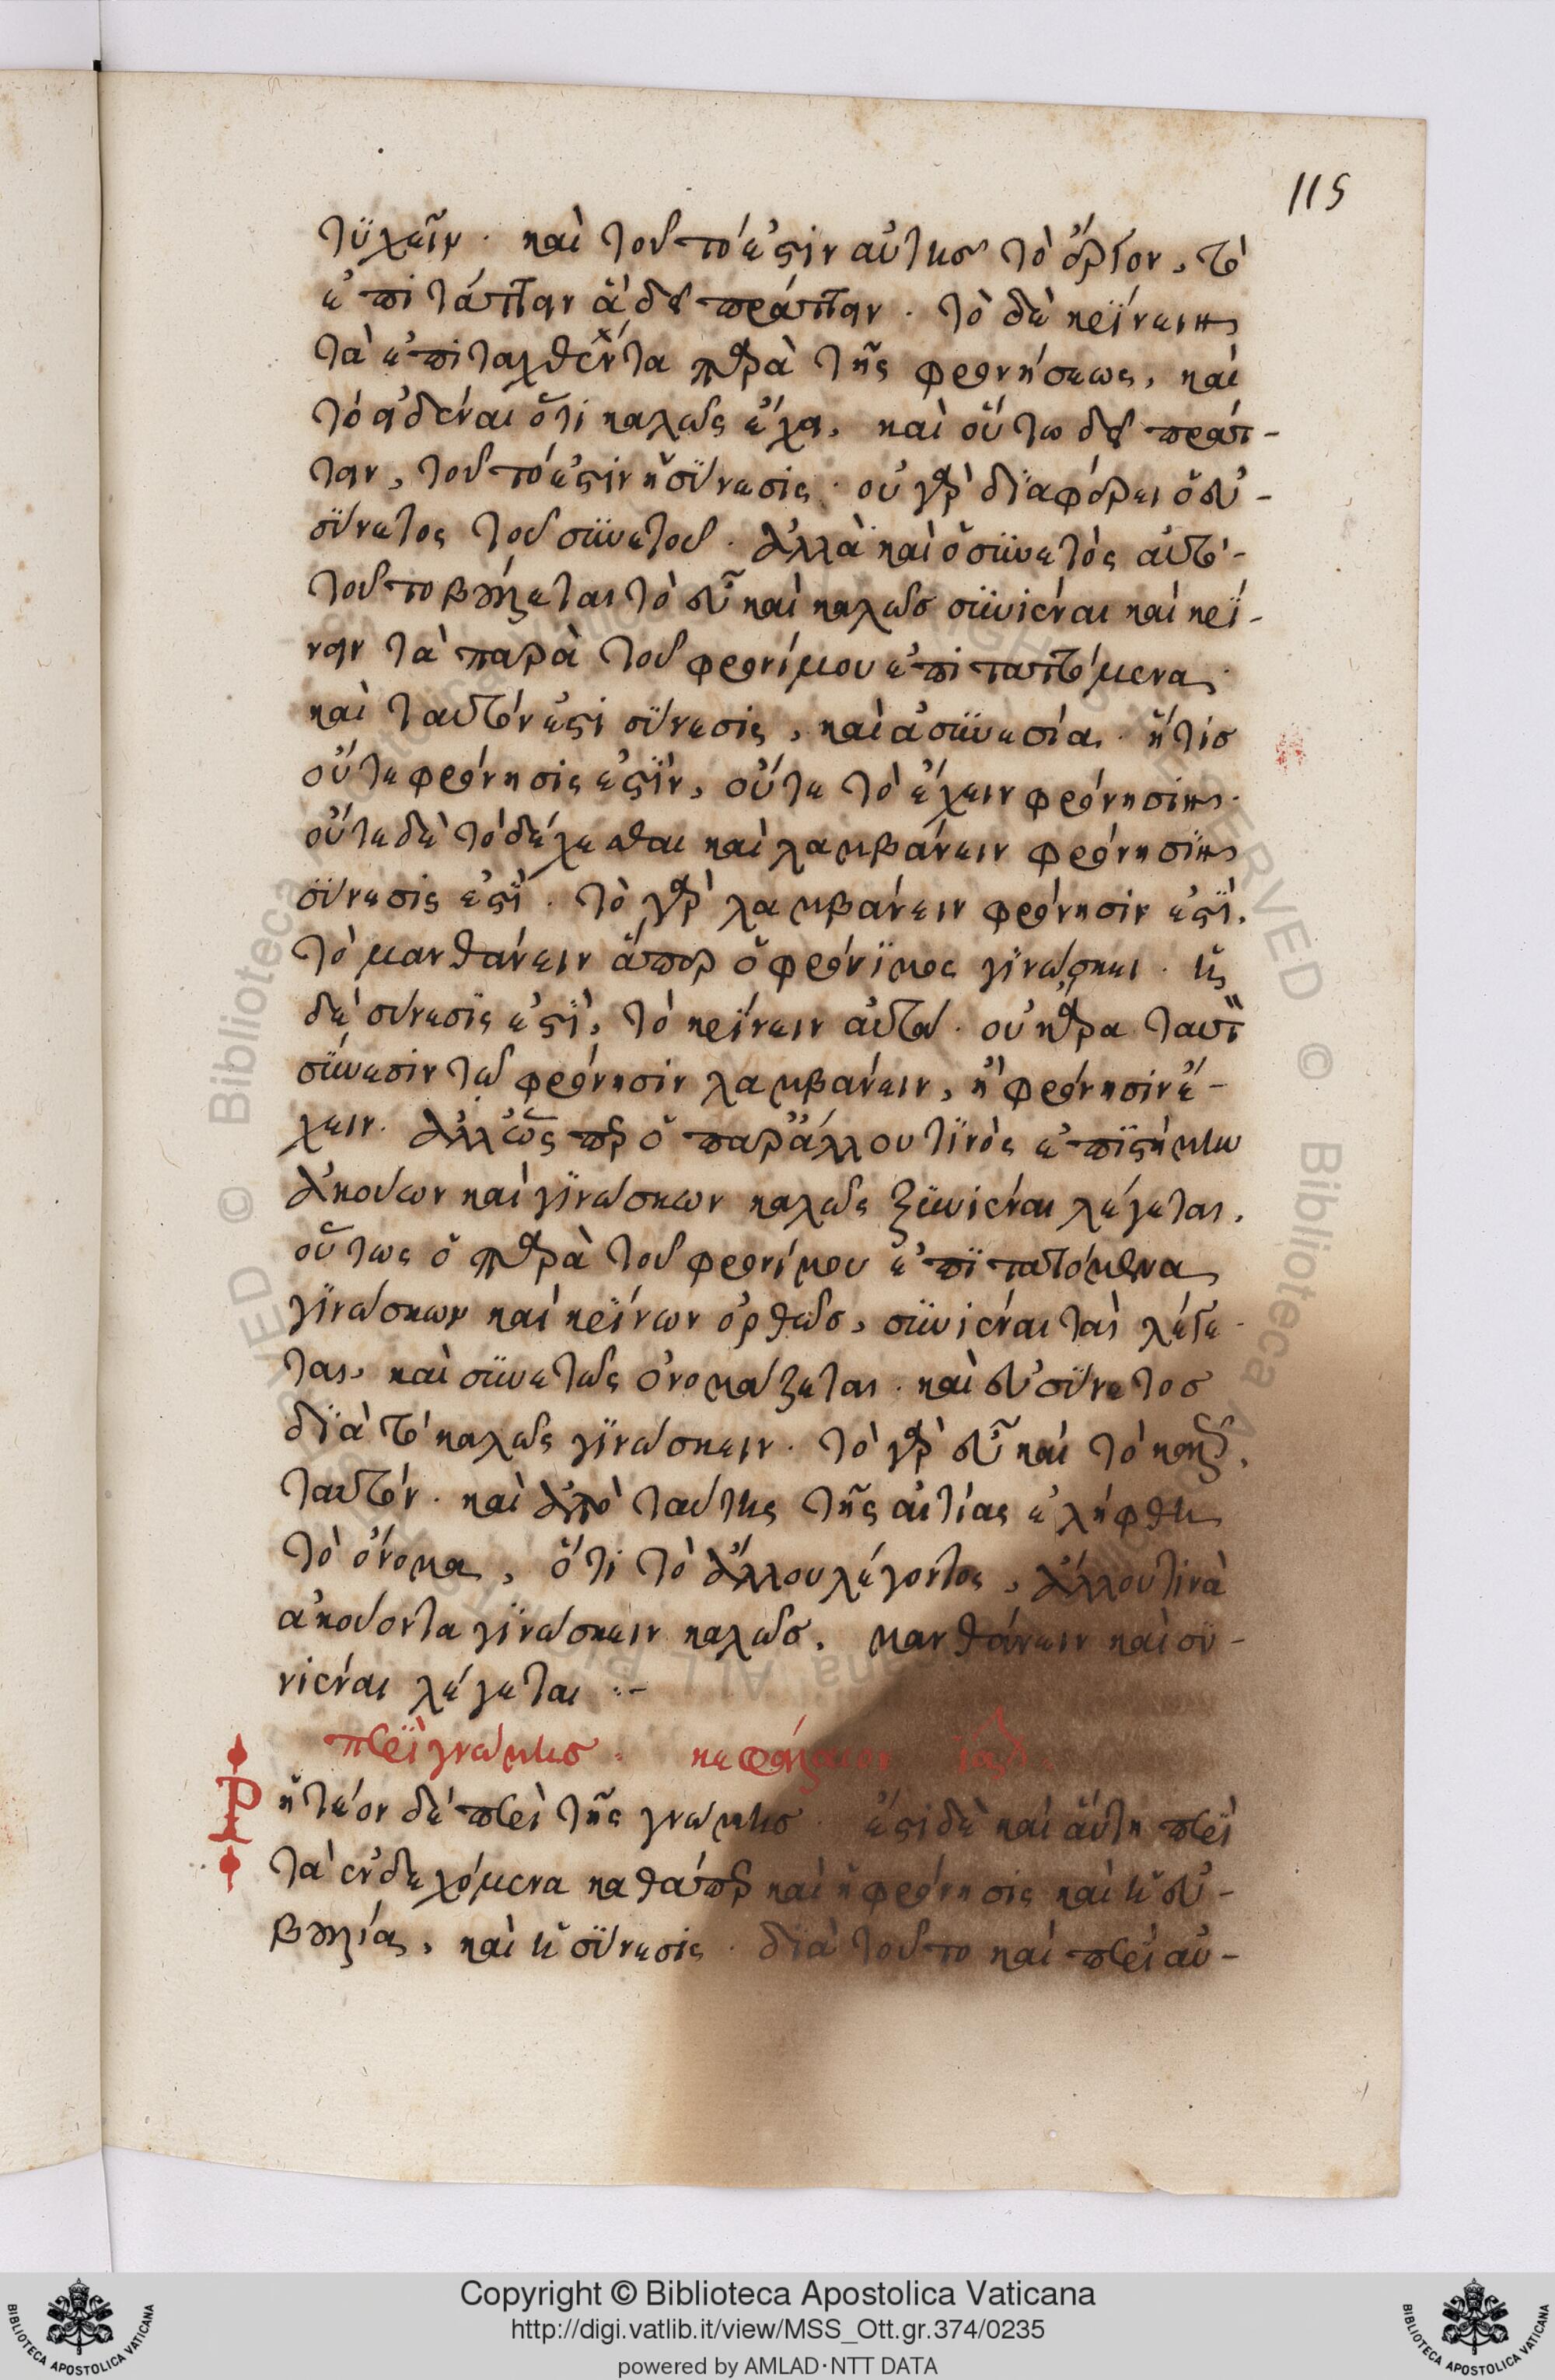 115
τϋχεῖν. καὶ τοῦτό ἐστιν αὐτῆσ τὸ ἔργον, τὸ
ἐπιτάττειν ἃ δεῖ πράττειν. τὸ δὲ κρίνειν
τὰ ἐπιταχθέντα παρὰ τῆς φρονήσεως, καὶ
τὸ εἰδέναι ὅτι καλῶς ἔχει, καὶ οὕτω δεῖ πράτ-
τειν, τοῦτό ἐστιν ἡ σΰνεσις. οὐ γὰρ δϊαφέρει ὁ εὐ-
σΰνετος τοῦ σϋνετοῦ. ἀλλὰ καὶ ὁ σϋνετὸς αὐτὸ
τοῦτο βούλεται τὸ εὖ καὶ καλῶσ σϋνιέναι καὶ κρί-
νειν τὰ παρὰ τοῦ φρονίμου ἐπιταττόμενα.
καὶ ταυτόν ἐστι σΰνεσις, καὶ εὐσϋνεσία. ἥτισ
οὔτε φρόνησις ἐστὶν, οὔτε τὸ ἔχειν φρόνησιν.
οὔτε δὲ τὸ δέχεσθαι καὶ λαμβάνειν φρόνησϊν
σΰνεσις ἐστὶ. τὸ γὰρ λαμβάνειν φρόνησιν ἐστὶ,
τὸ μανθάνειν ἅπερ ὁ φρόνϊμος γϊνώσκει. ἡ
δὲ σύνεσϊς ἐστὶ, τὸ κρίνειν αὐτά. οὐκ ἄρα ταυτὸ
σΰνεσιν τῷ φρόνησιν λαμβάνειν, ἢ φρόνησιν ἔ-
χειν. ἀλλ' ὥσπερ ὁ παρ' ἄλλου τϊνὸς ἐπϊστήμων
ἀκούων καὶ γϊνώσκων καλῶς ξϋνιέναι λέγεται,
οὕτως ὁ παρὰ τοῦ φρονίμου ἐπϊταττόμενα
γϊνώσκων καὶ κρίνων ὀρθῶσ, σϋνιέναι ταῦ λέγε-
ται, καὶ σϋνετὸς ὀνομάζεται. καὶ εὐσΰνετοσ
δϊὰ τὸ καλῶς γϊνώσκειν. τὸ γὰρ εὖ καὶ τὸ καλῶς,
ταυτόν. καὶ ἀπὸ ταύτης τῆς αἰτίας ἐλήφθη
τὸ ὄνομα, ὅτι τὸ ἄλλου λέγοντος, ἄλλον τινὰ
ἀκούοντα γϊνώσκειν καλῶσ, μανθάνειν καὶ συ-
νιέναι λέγεται :-
περὶ γνώμησ. κεφάλαιον ϊα.
Ρητέον δὲ περὶ τῆς γνώμησ. ἔστι δὲ καὶ αὕτη περὶ
τὰ ἐνδεχόμενα καθάπερ καὶ ἡ φρόνησις καὶ ἡ εὐ-
βουλία, καὶ ἡ σΰνεσις. δϊὰ τοῦτο καὶ περὶ αὐ-
Copyright © Biblioteca Apostolica Vaticana
http://digi.vatlib.it/view/MSS_Ott.gr.374/0235
powered by AMLAD·NTT DATA
BIBLIOTECA APOSTOLICA VATICANA
BIBLIOTECA APOSTOLICA VATICANA